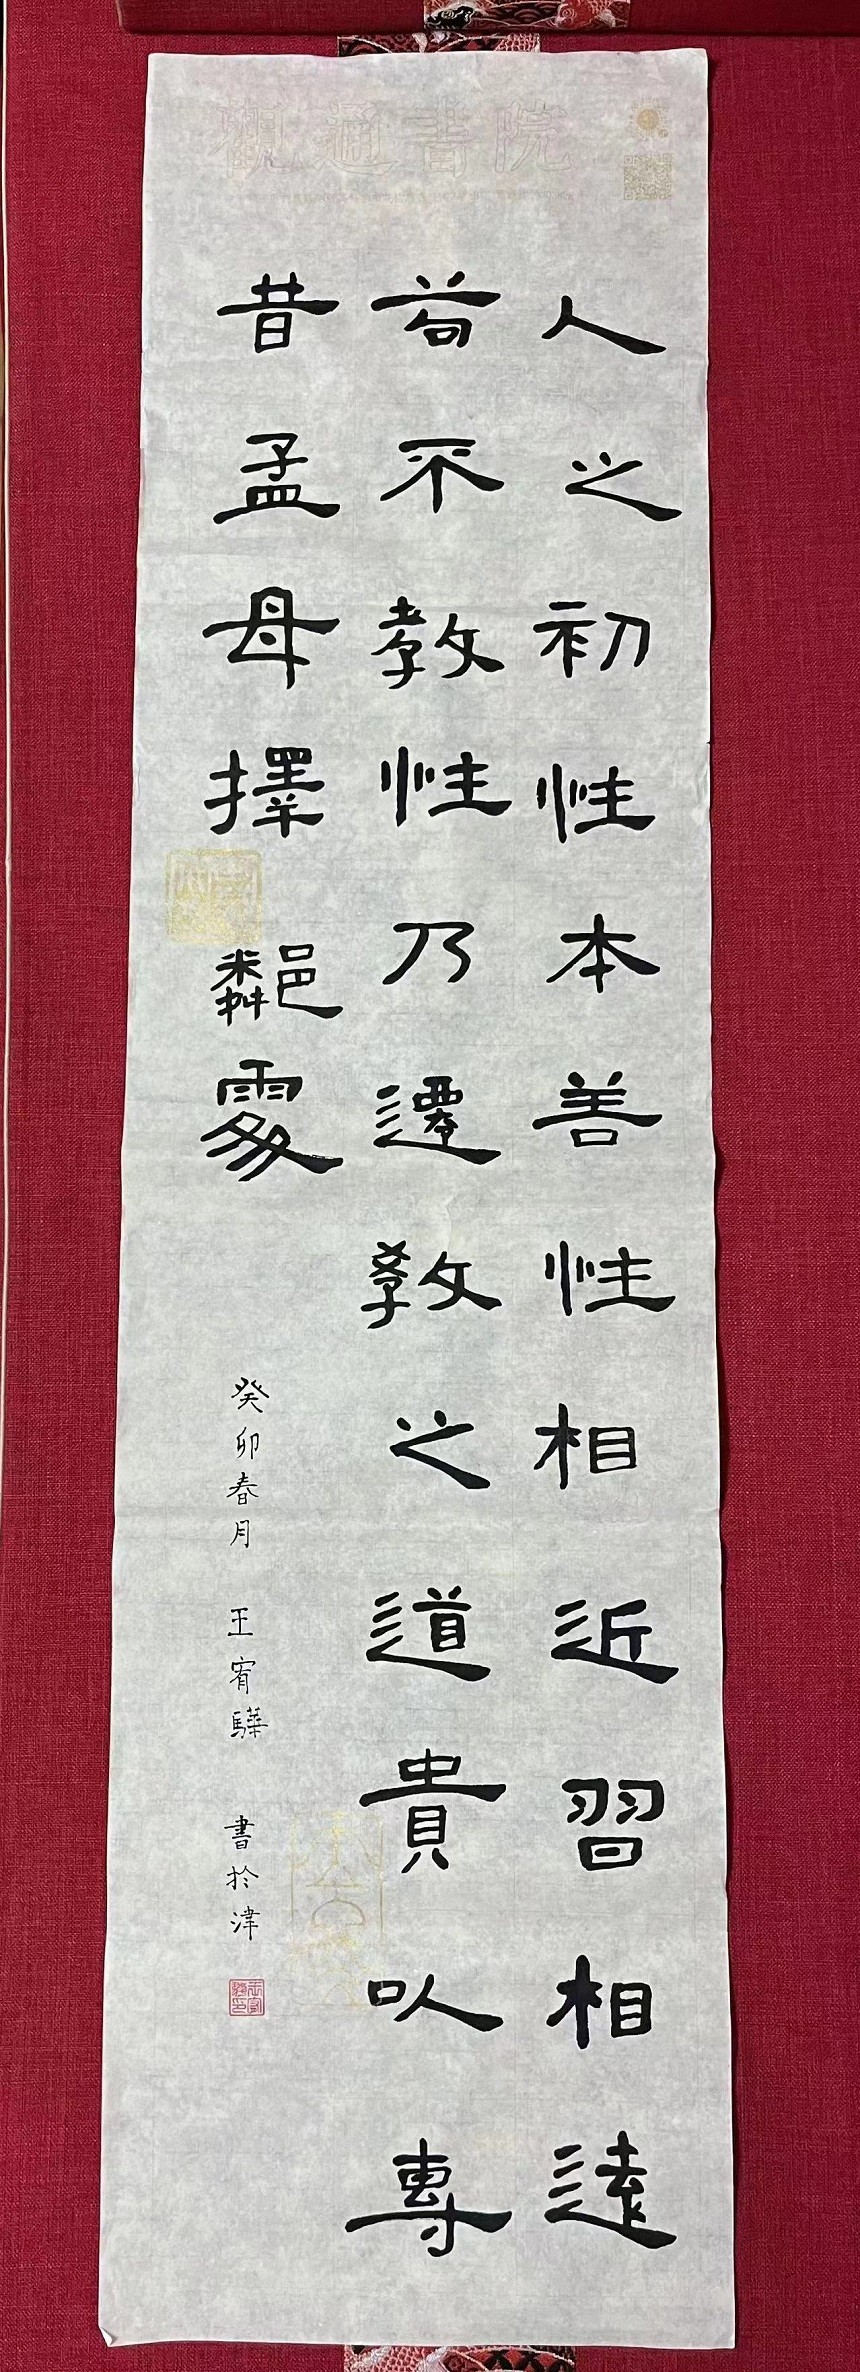 觀通書院
人之初性本善性相近習相遠
苟不教性乃遷教之道貴以專
昔孟母擇鄰處
癸卯春月 王宥驊 書於津